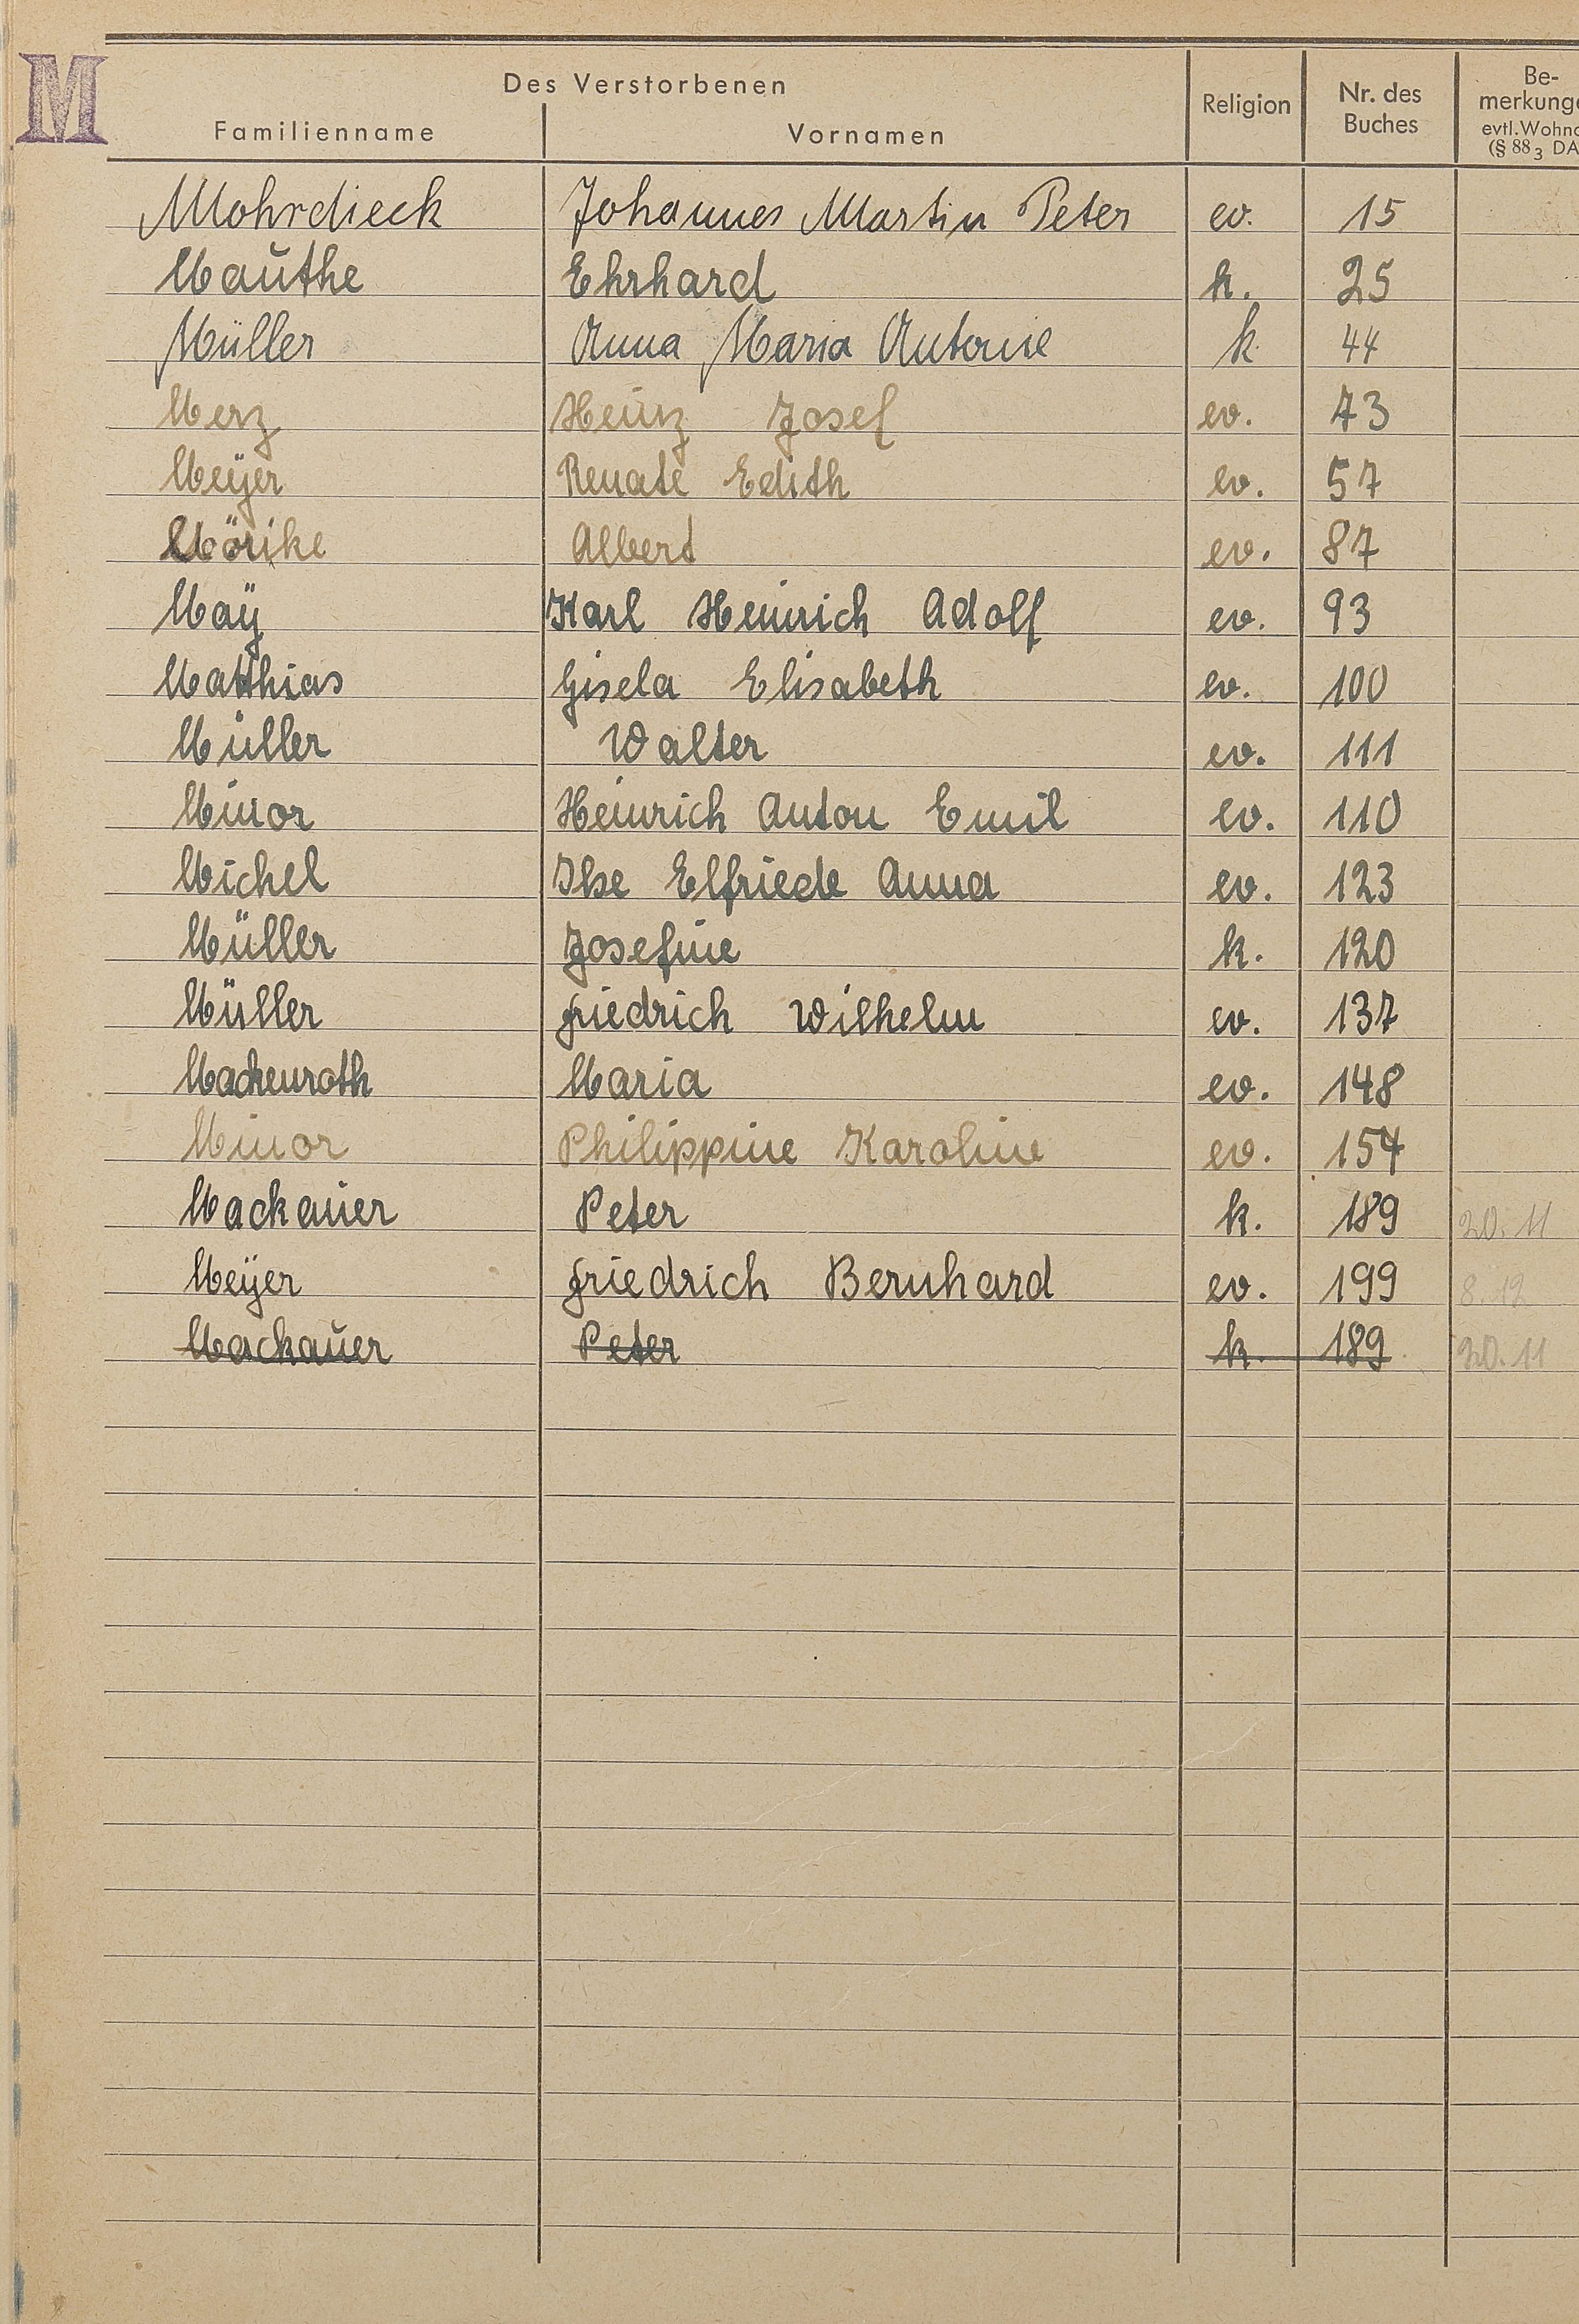 M
Des Verstorbenen
Familienname Vornamen Religion Nr. des Buches Be-merkunge evtl. Wohno (§ 88 3 DA
Mohrdieck Johannes Martin Peter ev. 15
Mauthe Ehrhard k. 25
Müller Anna Maria Antonie k 44
Merz Heinz Josef ev. 73
Meÿer Renate Edith ev. 57
Mörike Albert ev. 87
Maÿ Karl Heinrich Adolf ev. 93
Matthias Gisela Elisabeth ev. 100
Müller Walter ev. 111
Minor Heinrich Anton Emil ev. 110
Michel Ilse Elfriede Anna ev. 123
Müller Josefine k. 120
Müller Friedrich Wilhelm ev. 137
Mackenroth Maria ev. 148
Minor Philippine Karoline ev. 154
Mackauer Peter k. 189 20. 11
Meÿer Friedrich Bernhard ev. 199 8. 12
Mackauer Peter k. 189 20. 11